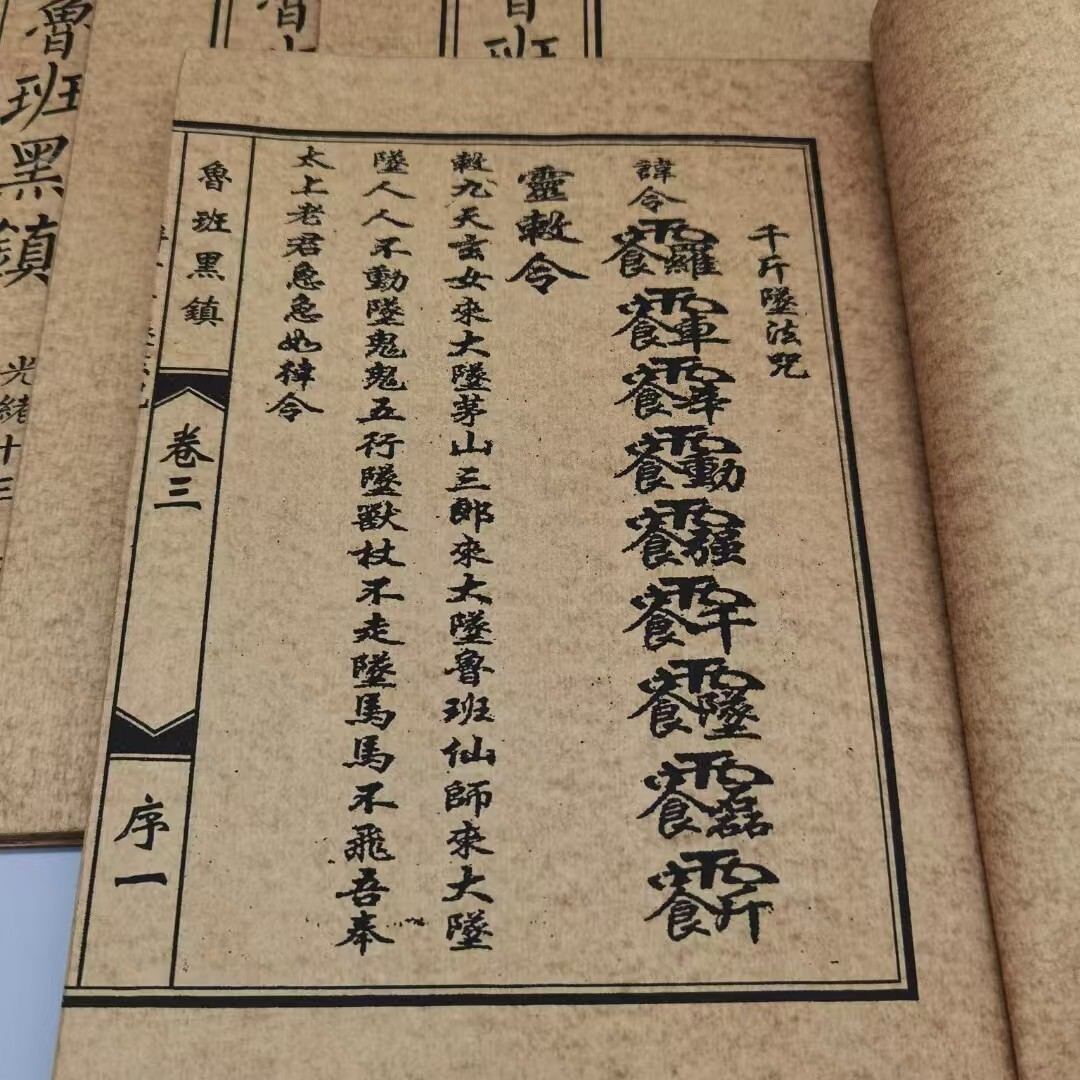 千斤墜法咒
諱令
靈敕令
敕九天玄女來大墜茅山三郎來大墜魯班仙師來大墜
墜人人不動墜鬼鬼五行墜獸杖不走墜馬馬不飛吾奉
太上老君急急如律令
魯班黑鎮
卷三
序一
魯班
魯班黑鎮
光緒十三